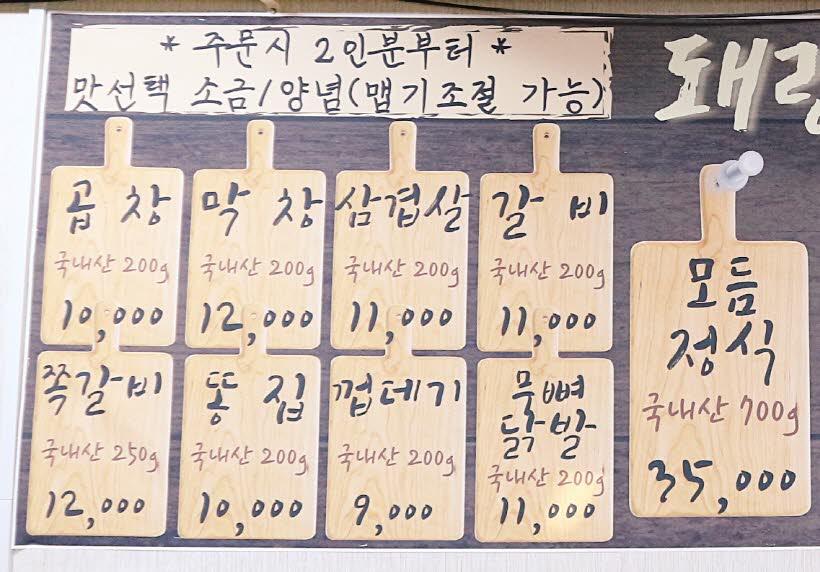 * 주문시 2인분부터 *
맛선택 소금/양념(맵기조절 가능)
곱창
국내산 200g
10,000
막창
국내산 200g
12,000
삼겹살
국내산 200g
11,000
갈비
국내산 200g
11,000
쪽갈비
국내산 250g
12,000
똥집
국내산 200g
10,000
껍데기
국내산 200g
9,000
무뼈
닭발
국내산 200g
11,000
모듬
정식
국내산 700g
35,000